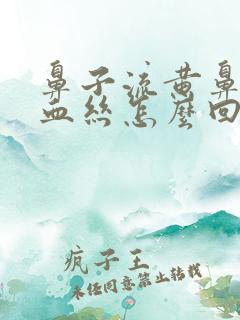 鼻子流黄鼻
血丝怎麽回
疯子王
未经同意禁止转载